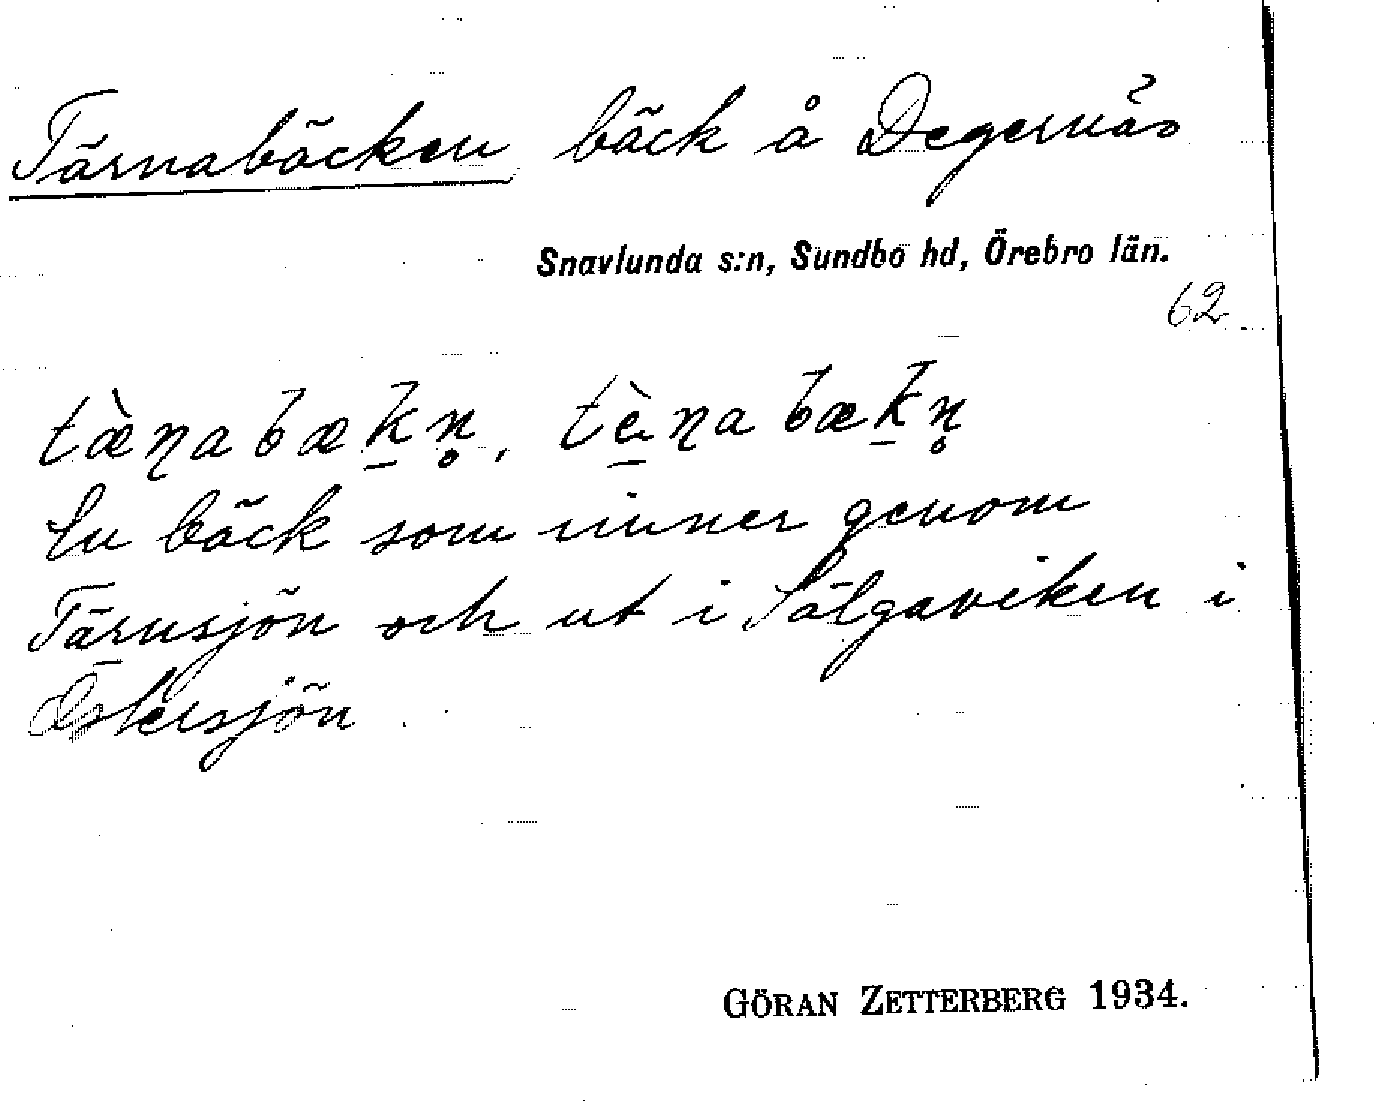 Tärnabäcken bäck å Degernäs
Snavlunda s:n, Sundbo hd, Örebro län.
62
tæ̀ṇabæk̠n̥, tè̠ṇabæk̠n̥
En bäck som rinner genom
Tärnsjön och ut i Sälgaviken i
Östersjön
GÖRAN ZETTERBERG 1934.